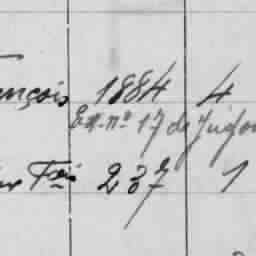 ançois 1884 4
Ex. nº 17 de Jugon
Fois 237 1